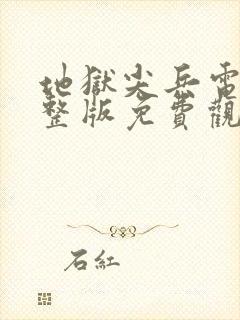 地獄尖兵電
整版免費觀
石紅